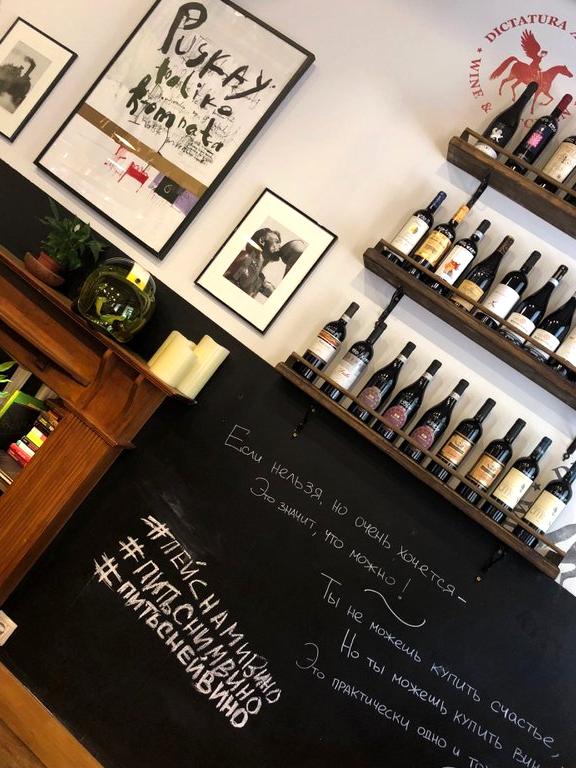 DICTATURA
WINE &
PUSKAY
toliko
komnata
Если нельзя, но очень хочется-
Это значит, что можно!
Ты не можешь купить счастье,
Но ты можешь купить вин
Это практически одно и то
#ПЕЙСНАМИВИНО
#ПИТЬСНИМВИНО
#ПИТЬСНЕЙВИНО